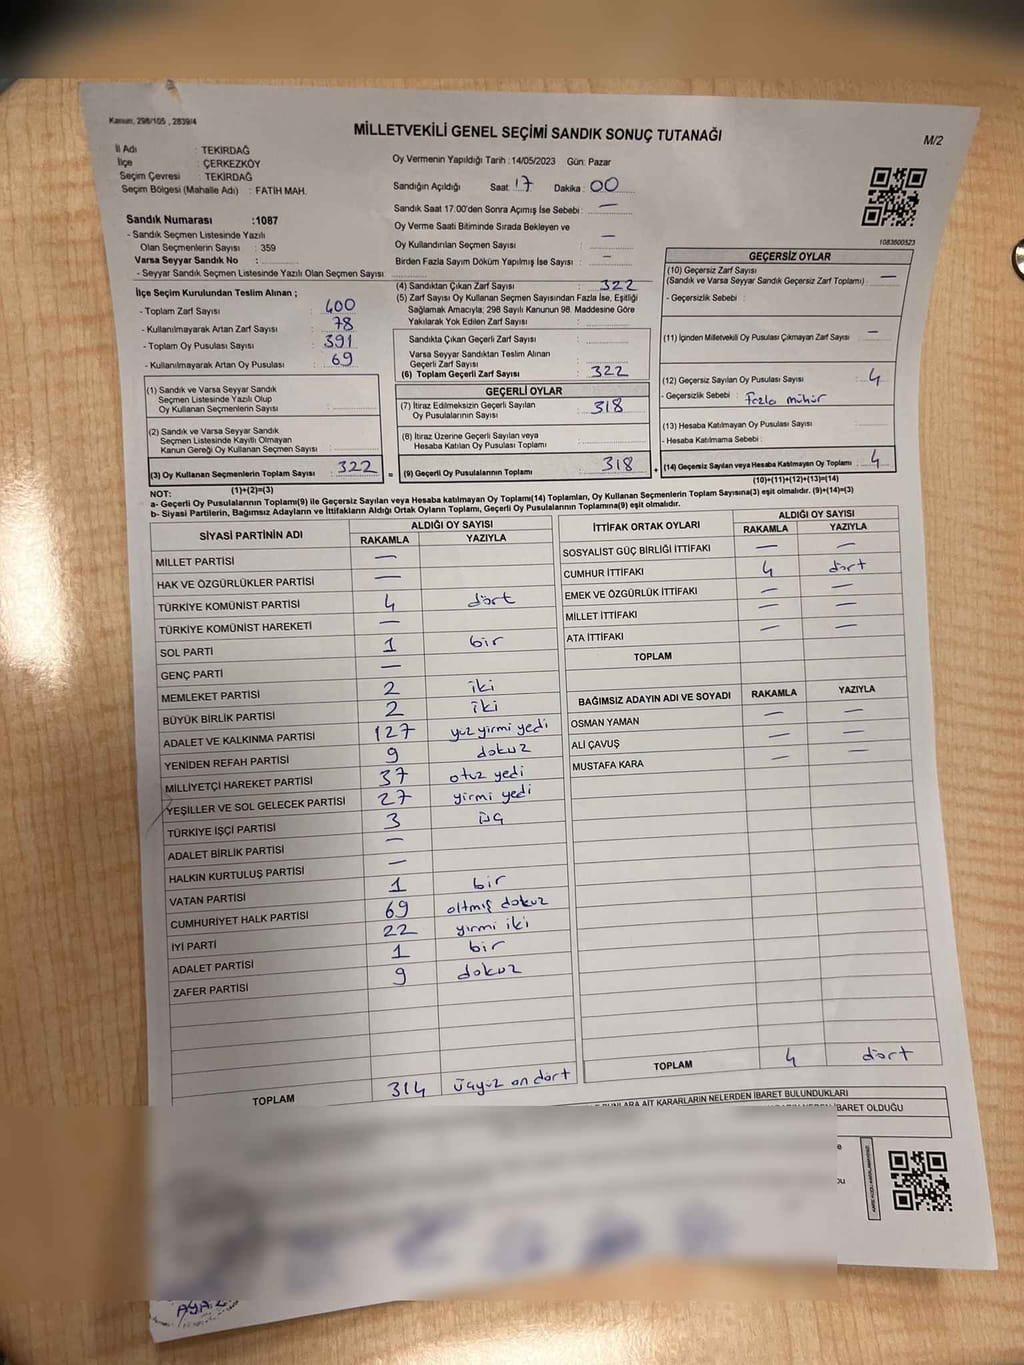 Kanun, 298/105 , 2839/4
MİLLETVEKİLİ GENEL SEÇİMİ SANDIK SONUÇ TUTANAĞI
M/2
İl Adı : TEKİRDAĞ
İlçe : ÇERKEZKÖY
Seçim Çevresi : TEKİRDAĞ
Seçim Bölgesi (Mahalle Adı) : FATİH MAH.
Oy Vermenin Yapıldığı Tarih : 14/05/2023 Gün: Pazar
Sandığın Açıldığı Saat: 17 Dakika : 00
Sandık Saat 17.00'den Sonra Açımış İse Sebebi : —
Oy Verme Saati Bitiminde Sırada Bekleyen ve
Oy Kullandırılan Seçmen Sayısı : —
Birden Fazla Sayım Döküm Yapılmış İse Sayısı : —
1083600523
Sandık Numarası :1087
- Sandık Seçmen Listesinde Yazılı
Olan Seçmenlerin Sayısı : 359
Varsa Seyyar Sandık No :
- Seyyar Sandık Seçmen Listesinde Yazılı Olan Seçmen Sayısı :
İlçe Seçim Kurulundan Teslim Alınan ;
- Toplam Zarf Sayısı : 400
- Kullanılmayarak Artan Zarf Sayısı : 78
- Toplam Oy Pusulası Sayısı : 391
- Kullanılmayarak Artan Oy Pusulası : 69
(1) Sandık ve Varsa Seyyar Sandık
Seçmen Listesinde Yazılı Olup
Oy Kullanan Seçmenlerin Sayısı :
(2) Sandık ve Varsa Seyyar Sandık
Seçmen Listesinde Kayıtlı Olmayan
Kanun Gereği Oy Kullanan Seçmen Sayısı :
(3) Oy Kullanan Seçmenlerin Toplam Sayısı : 322
(1)+(2)=(3)
(4) Sandıktan Çıkan Zarf Sayısı : 322
(5) Zarf Sayısı Oy Kullanan Seçmen Sayısından Fazla İse, Eşitliği
Sağlamak Amacıyla; 298 Sayılı Kanunun 98. Maddesine Göre
Yakılarak Yok Edilen Zarf Sayısı :
Sandıkta Çıkan Geçerli Zarf Sayısı :
Varsa Seyyar Sandıktan Teslim Alınan
Geçerli Zarf Sayısı :
(6) Toplam Geçerli Zarf Sayısı : 322
GEÇERLİ OYLAR
(7) İtiraz Edilmeksizin Geçerli Sayılan
Oy Pusulalarının Sayısı : 318
(8) İtiraz Üzerine Geçerli Sayılan veya
Hesaba Katılan Oy Pusulası Toplamı :
= (9) Geçerli Oy Pusulalarının Toplamı : 318
GEÇERSİZ OYLAR
(10) Geçersiz Zarf Sayısı
(Sandık ve Varsa Seyyar Sandık Geçersiz Zarf Toplamı) : —
- Geçersizlik Sebebi :
(11) İçinden Milletvekili Oy Pusulası Çıkmayan Zarf Sayısı : —
(12) Geçersiz Sayılan Oy Pusulası Sayısı : 4
- Geçersizlik Sebebi : Fazla mühür
(13) Hesaba Katılmayan Oy Pusulası Sayısı :
- Hesaba Katılmama Sebebi :
+ (14) Geçersiz Sayılan veya Hesaba Katılmayan Oy Toplamı : 4
(10)+(11)+(12)+(13)=(14)
NOT:
a- Geçerli Oy Pusulalarının Toplamı(9) ile Geçersiz Sayılan veya Hesaba katılmayan Oy Toplamı(14) Toplamları, Oy Kullanan Seçmenlerin Toplam Sayısına(3) eşit olmalıdır. (9)+(14)=(3)
b- Siyasi Partilerin, Bağımsız Adayların ve İttifakların Aldığı Ortak Oyların Toplamı, Geçerli Oy Pusulalarının Toplamına(9) eşit olmalıdır.
SİYASİ PARTİNİN ADI ALDIĞI OY SAYISI
RAKAMLA YAZIYLA
MİLLET PARTİSİ —
HAK VE ÖZGÜRLÜKLER PARTİSİ —
TÜRKİYE KOMÜNİST PARTİSİ 4 dört
TÜRKİYE KOMÜNİST HAREKETİ —
SOL PARTİ 1 bir
GENÇ PARTİ —
MEMLEKET PARTİSİ 2 iki
BÜYÜK BİRLİK PARTİSİ 2 iki
ADALET VE KALKINMA PARTİSİ 127 yuz yirmi yedi
YENİDEN REFAH PARTİSİ 9 dokuz
MİLLİYETÇİ HAREKET PARTİSİ 37 otuz yedi
YEŞİLLER VE SOL GELECEK PARTİSİ 27 yirmi yedi
TÜRKİYE İŞÇİ PARTİSİ 3 üç
ADALET BİRLİK PARTİSİ —
HALKIN KURTULUŞ PARTİSİ —
VATAN PARTİSİ 1 bir
CUMHURİYET HALK PARTİSİ 69 altmış dokuz
İYİ PARTİ 22 yirmi iki
ADALET PARTİSİ 1 bir
ZAFER PARTİSİ 9 dokuz
TOPLAM 314 üçyüz on dört
İTTİFAK ORTAK OYLARI ALDIĞI OY SAYISI
RAKAMLA YAZIYLA
SOSYALİST GÜÇ BİRLİĞİ İTTİFAKI — —
CUMHUR İTTİFAKI 4 dört
EMEK VE ÖZGÜRLÜK İTTİFAKI — —
MİLLET İTTİFAKI — —
ATA İTTİFAKI — —
TOPLAM
BAĞIMSIZ ADAYIN ADI VE SOYADI RAKAMLA YAZIYLA
OSMAN YAMAN — —
ALİ ÇAVUŞ — —
MUSTAFA KARA —
TOPLAM 4 dört
BUNLARA AİT KARARLARIN NELERDEN İBARET BULUNDUKLARI
İBARET OLDUĞU